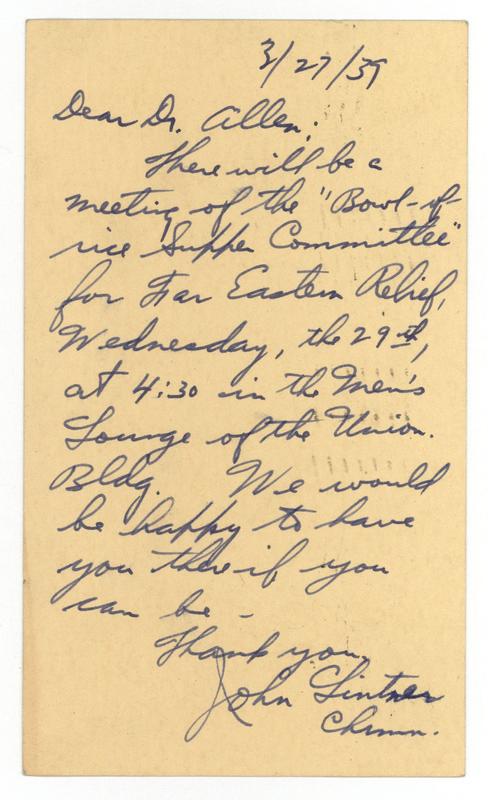 3/27/39
Dear Dr. Allen;
There will be a
meeting of the "Bowl-of-
rice Supper Committee"
for Far Eastern Relief,
Wednesday, the 29th,
at 4:30 in the Men's
Lounge of the Union.
Bldg. We would
be happy to have
you there if you
can be -
Thank you.
John Lintner
Chrmn.